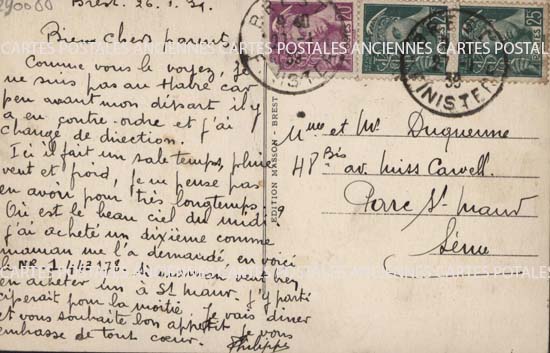 290080
Brest. 26.1.39.
Bien Chers parents,
Comme vous le voyez, je
ne suis pas au Havre car
peu avant mon départ il y
a eu contre-ordre et j'ai
changé de direction.
Ici il fait un sale temps, pluie
vent et froid, je ne pense pas
en avoir pour très longtemps.
Où est le beau ciel du midi ?
j'ai acheté un dixième comme
maman me l'a demandé, en voici
le N°
en acheter un à St Maur. j'y parti
ciperait pour la moitié. Je vais dîner
et vous souhaite bon appétit. Je vous
embrasse de tout coeur.
Philippe
EDITION MASSON - BREST
20
25
25
BREST
FINISTERE
FINISTERE
Mme et Mr Duquenne
48 Bis av. Miss Cavell.
Parc St Maur
Seine
CARTES POSTALES ANCIENNES CARTES POSTALES ANCIENNES CARTES POSTALES